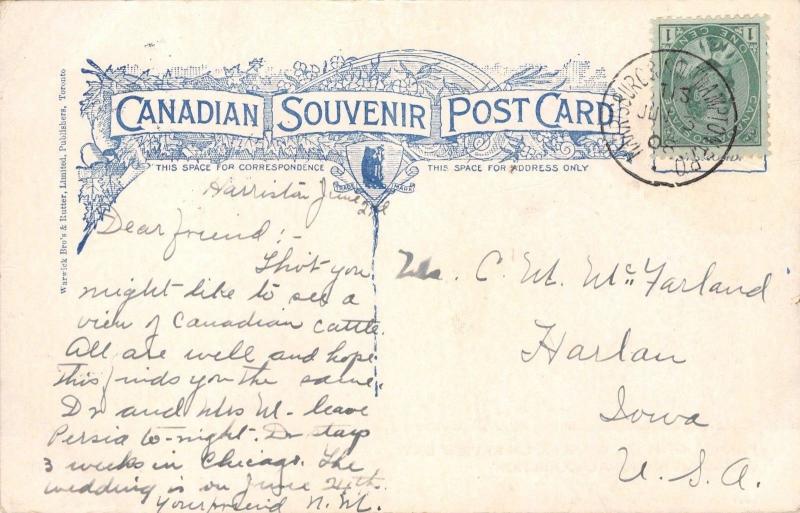 Warwick Bro's & Rutter, Limited, Publishers, Toronto
CANADIAN SOUVENIR POST CARD
THIS SPACE FOR CORRESPONDENCE
THIS SPACE FOR ADDRESS ONLY
TRADE MARK
ONE CENT
1 1
JU
08
Harriston June 2nd
Dear friend:-
Thot you
might like to see a
view of Canadian cattle.
All are well and hope
this finds you the same.
Dr and Mrs M- leave
Persia to-night. Dr stays
3 weeks in Chicago. The
wedding is on June 24th.
Your friend N. M.
C. M. McFarland
Harlan
Iowa
U.S.A.